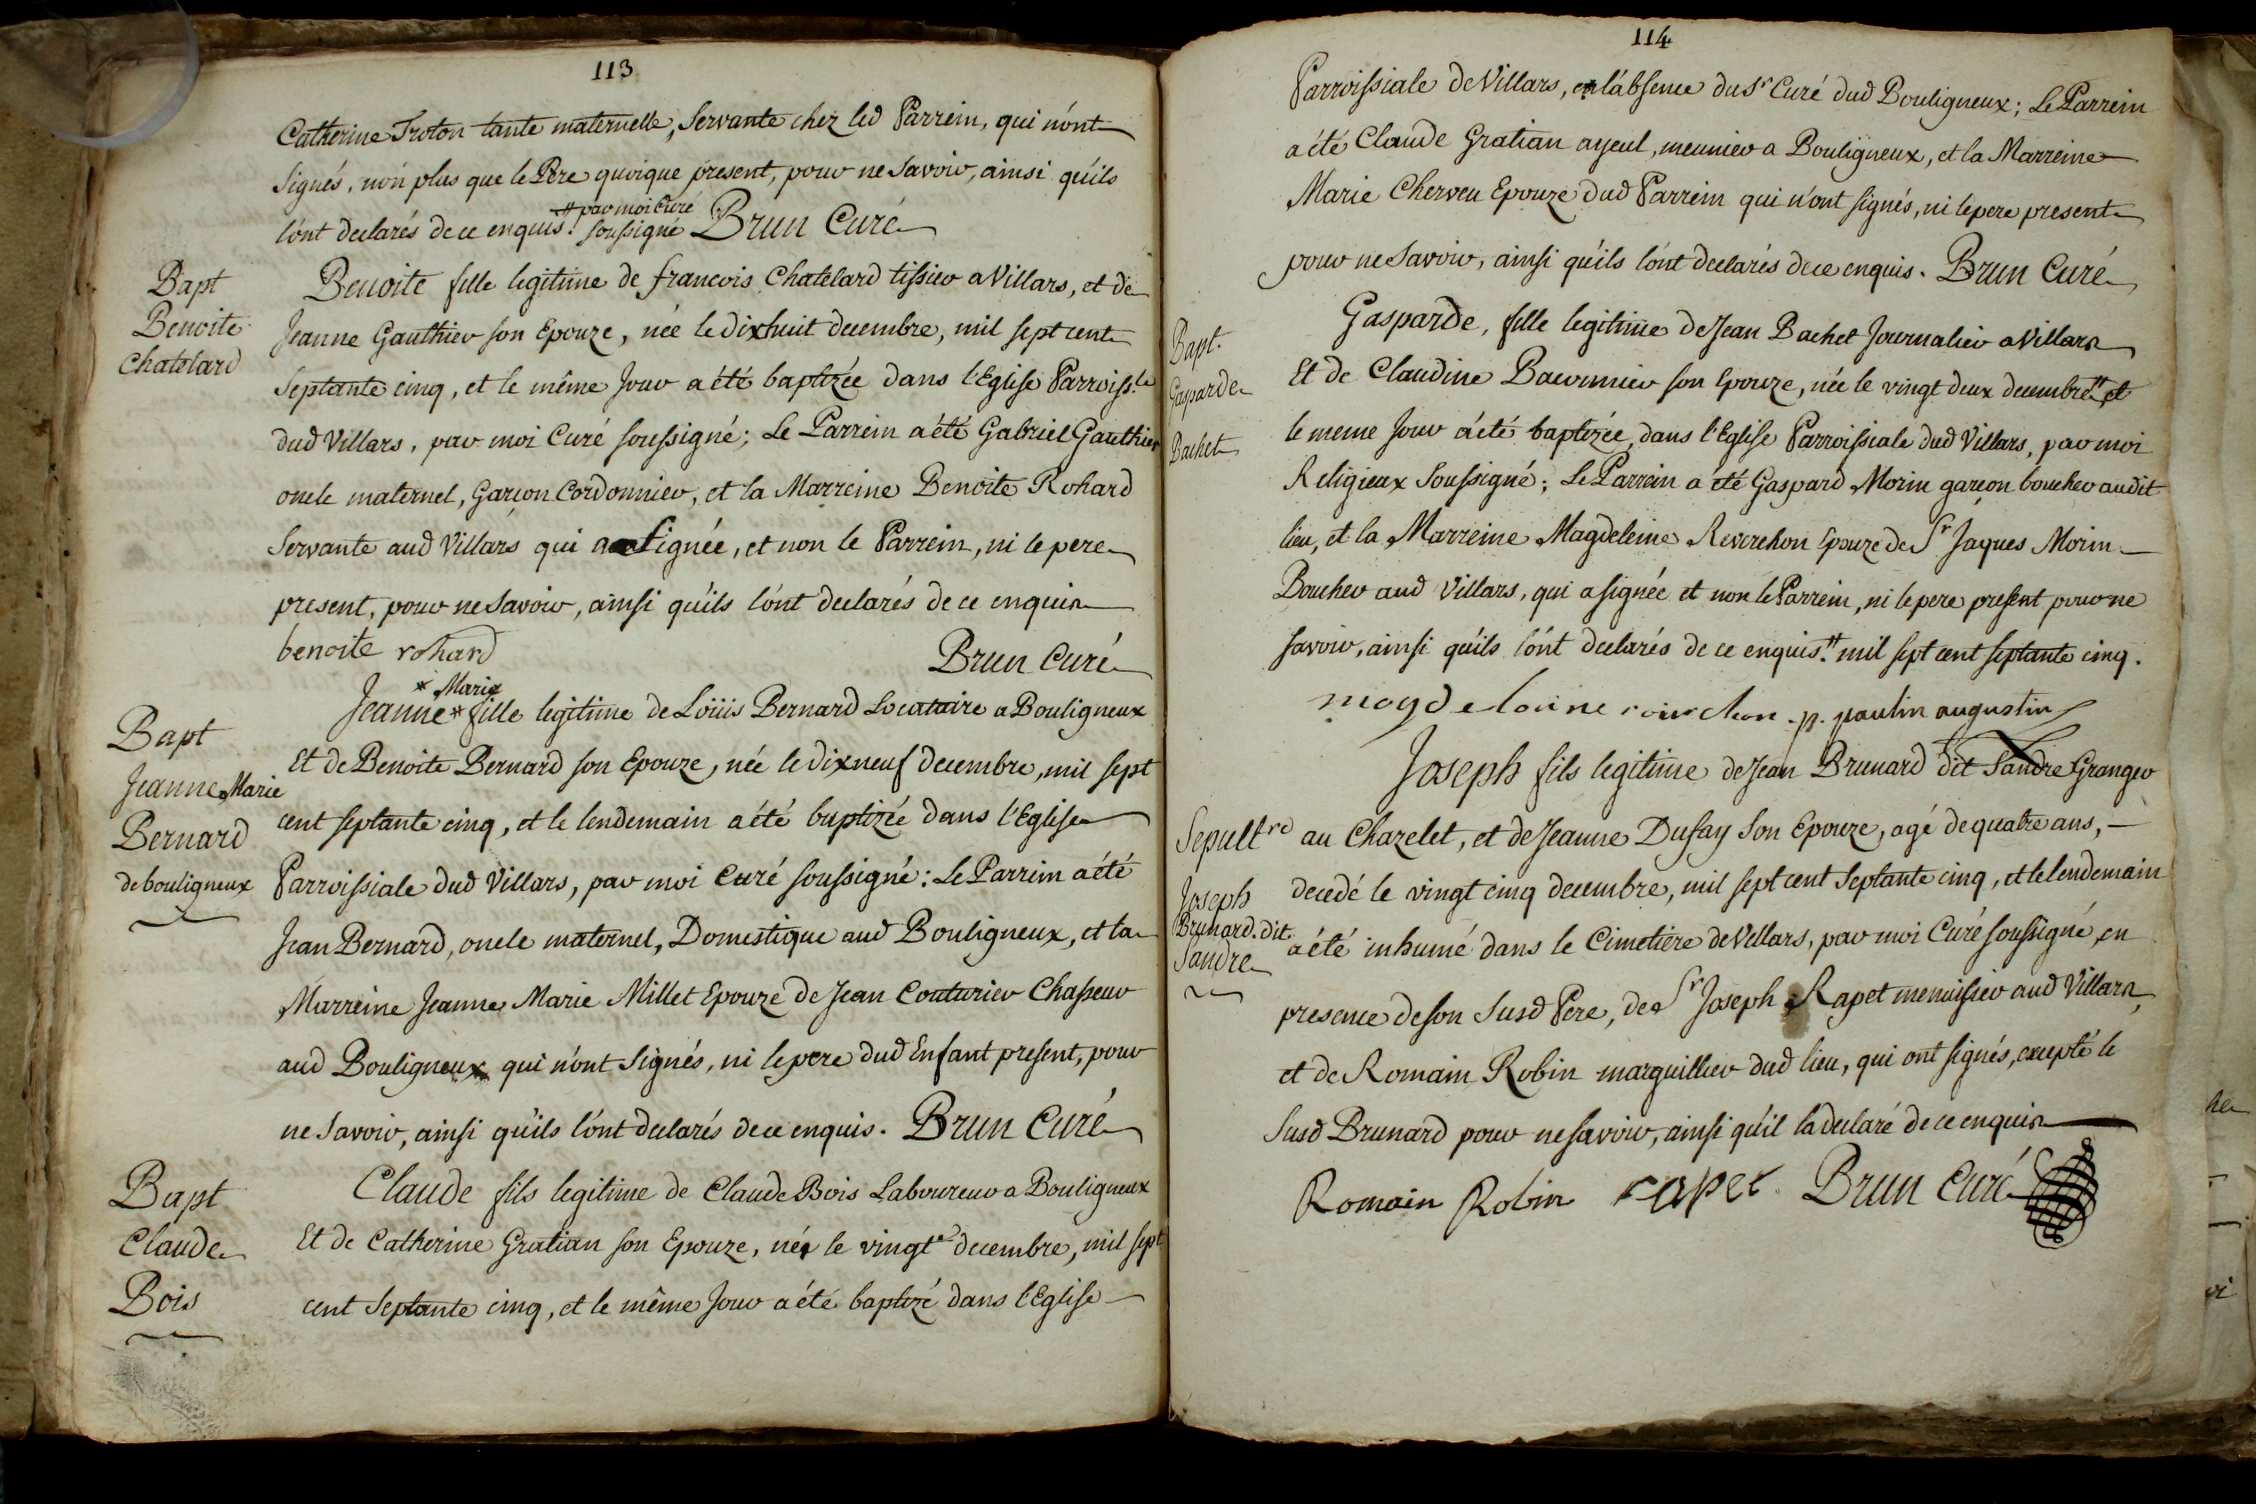 113
Catherine Troton tante maternelle, Servante chez led Parrein, qui n'ont
Signés, non plus que le Père quoique présent, pour ne Savoir, ainsi qu'ils
# par moi Curé
l'ont declarés de ce enquis # soussigné Brun Curé
Bapt
Benoite
Chatelard
Benoite fille legitime de francois Chatelard tissier a Villars, et de
Jeanne Gauthier son Epouze, née le dixhuit decembre, mil sept cent
Septante cinq, et le même Jour a été baptizée dans l'Eglise Parroiss.le
dud Villars, par moi Curé soussigné; Le Parrein a été Gabriel Gauthier
oncle maternel, Garçon Cordonnier, et la Marreine Benoite Rohard
Servante aud Villars qui a Signée, et non le Parrein, ni le pere
present, pour ne Savoir, ainsi qu'ils l'ont declarés de ce enquis
benoite rohard
Brun Curé
Bapt
Jeanne Marie
Bernard
de bouligneux
* Marie
Jeanne * fille legitime de Loüis Bernard Locataire a Bouligneux
Et de Benoite Bernard son Epouze, née le dixneuf decembre, mil sept
cent septante cinq, et le lendemain a été baptizée dans l'Eglise
Parroissiale dud Villars, par moi Curé soussigné: Le Parrein a été
Jean Bernard, oncle maternel, Domestique aud Bouligneux, et la
Marreine Jeanne Marie Millet Epouze de Jean Couturier Chasseur
aud Bouligneux qui n'ont Signés, ni le pere dud Enfant present, pour
ne Savoir, ainsi qu'ils l'ont declarés de ce enquis. Brun Curé
Bapt
Claude
Bois
Claude fils legitime de Claude Bois Laboureur a Bouligneux
Et de Catherine Gratian son Epouze, né le vingt decembre, mil sept
cent Septante cinq, et le même Jour a été baptizé dans l'Eglise
114
Parroissiale de Villars, en l'absence du Sr Curé dud Bouligneux; Le Parrein
a été Claude Gratian ayeul, meunier a Bouligneux, et la Marreine
Marie Cherveu Epouze dud Parrein qui n'ont signés, ni le pere present
pour ne Savoir, ainsi qu'ils l'ont declarés de ce enquis. Brun Curé
Bapt.
Gasparde
Bachet
Gasparde, fille legitime de Jean Bachet Journalier a Villars
Et de Claudine son Epouze, née le vingt deux decembre # et
le meme Jour a été baptizée, dans l'Eglise Parroissiale dud Villars, par moi
Religieux Soussigné; Le Parrein a été Gaspard Morin garçon boucher audit
lieu, et la Marreine Magdeleine Reverchon Epouze de Sr Jaques Morin
Boucher aud Villars, qui a signée et non le Parrein, ni le pere present pour ne
savoir, ainsi qu'ils l'ont declarés de ce enquis. # mil sept cent septante cinq.
p. paulin augustin
Sepultre
Joseph
Brunard. dit
Sandre
Joseph fils legitime de Jean Brunard dit Sandre Granger
au Chazelet, et de Jeanne Dufay Son Epouze, agé de quatre ans,
decedé le vingt cinq decembre, mil sept cent Septante cinq, et le lendemain
a été inhumé dans le Cimetière de Villars, par moi Curé soussigné, en
presence de son Susd Pere, de Sr Joseph Rapet menuisier aud Villars,
et de Romain Robin marguillier dud lieu, qui ont signés, excepté le
Susd Brunard pour ne savoir, ainsi qu'il la declaré de ce enquis
Romain Robin rapet Brun Curé